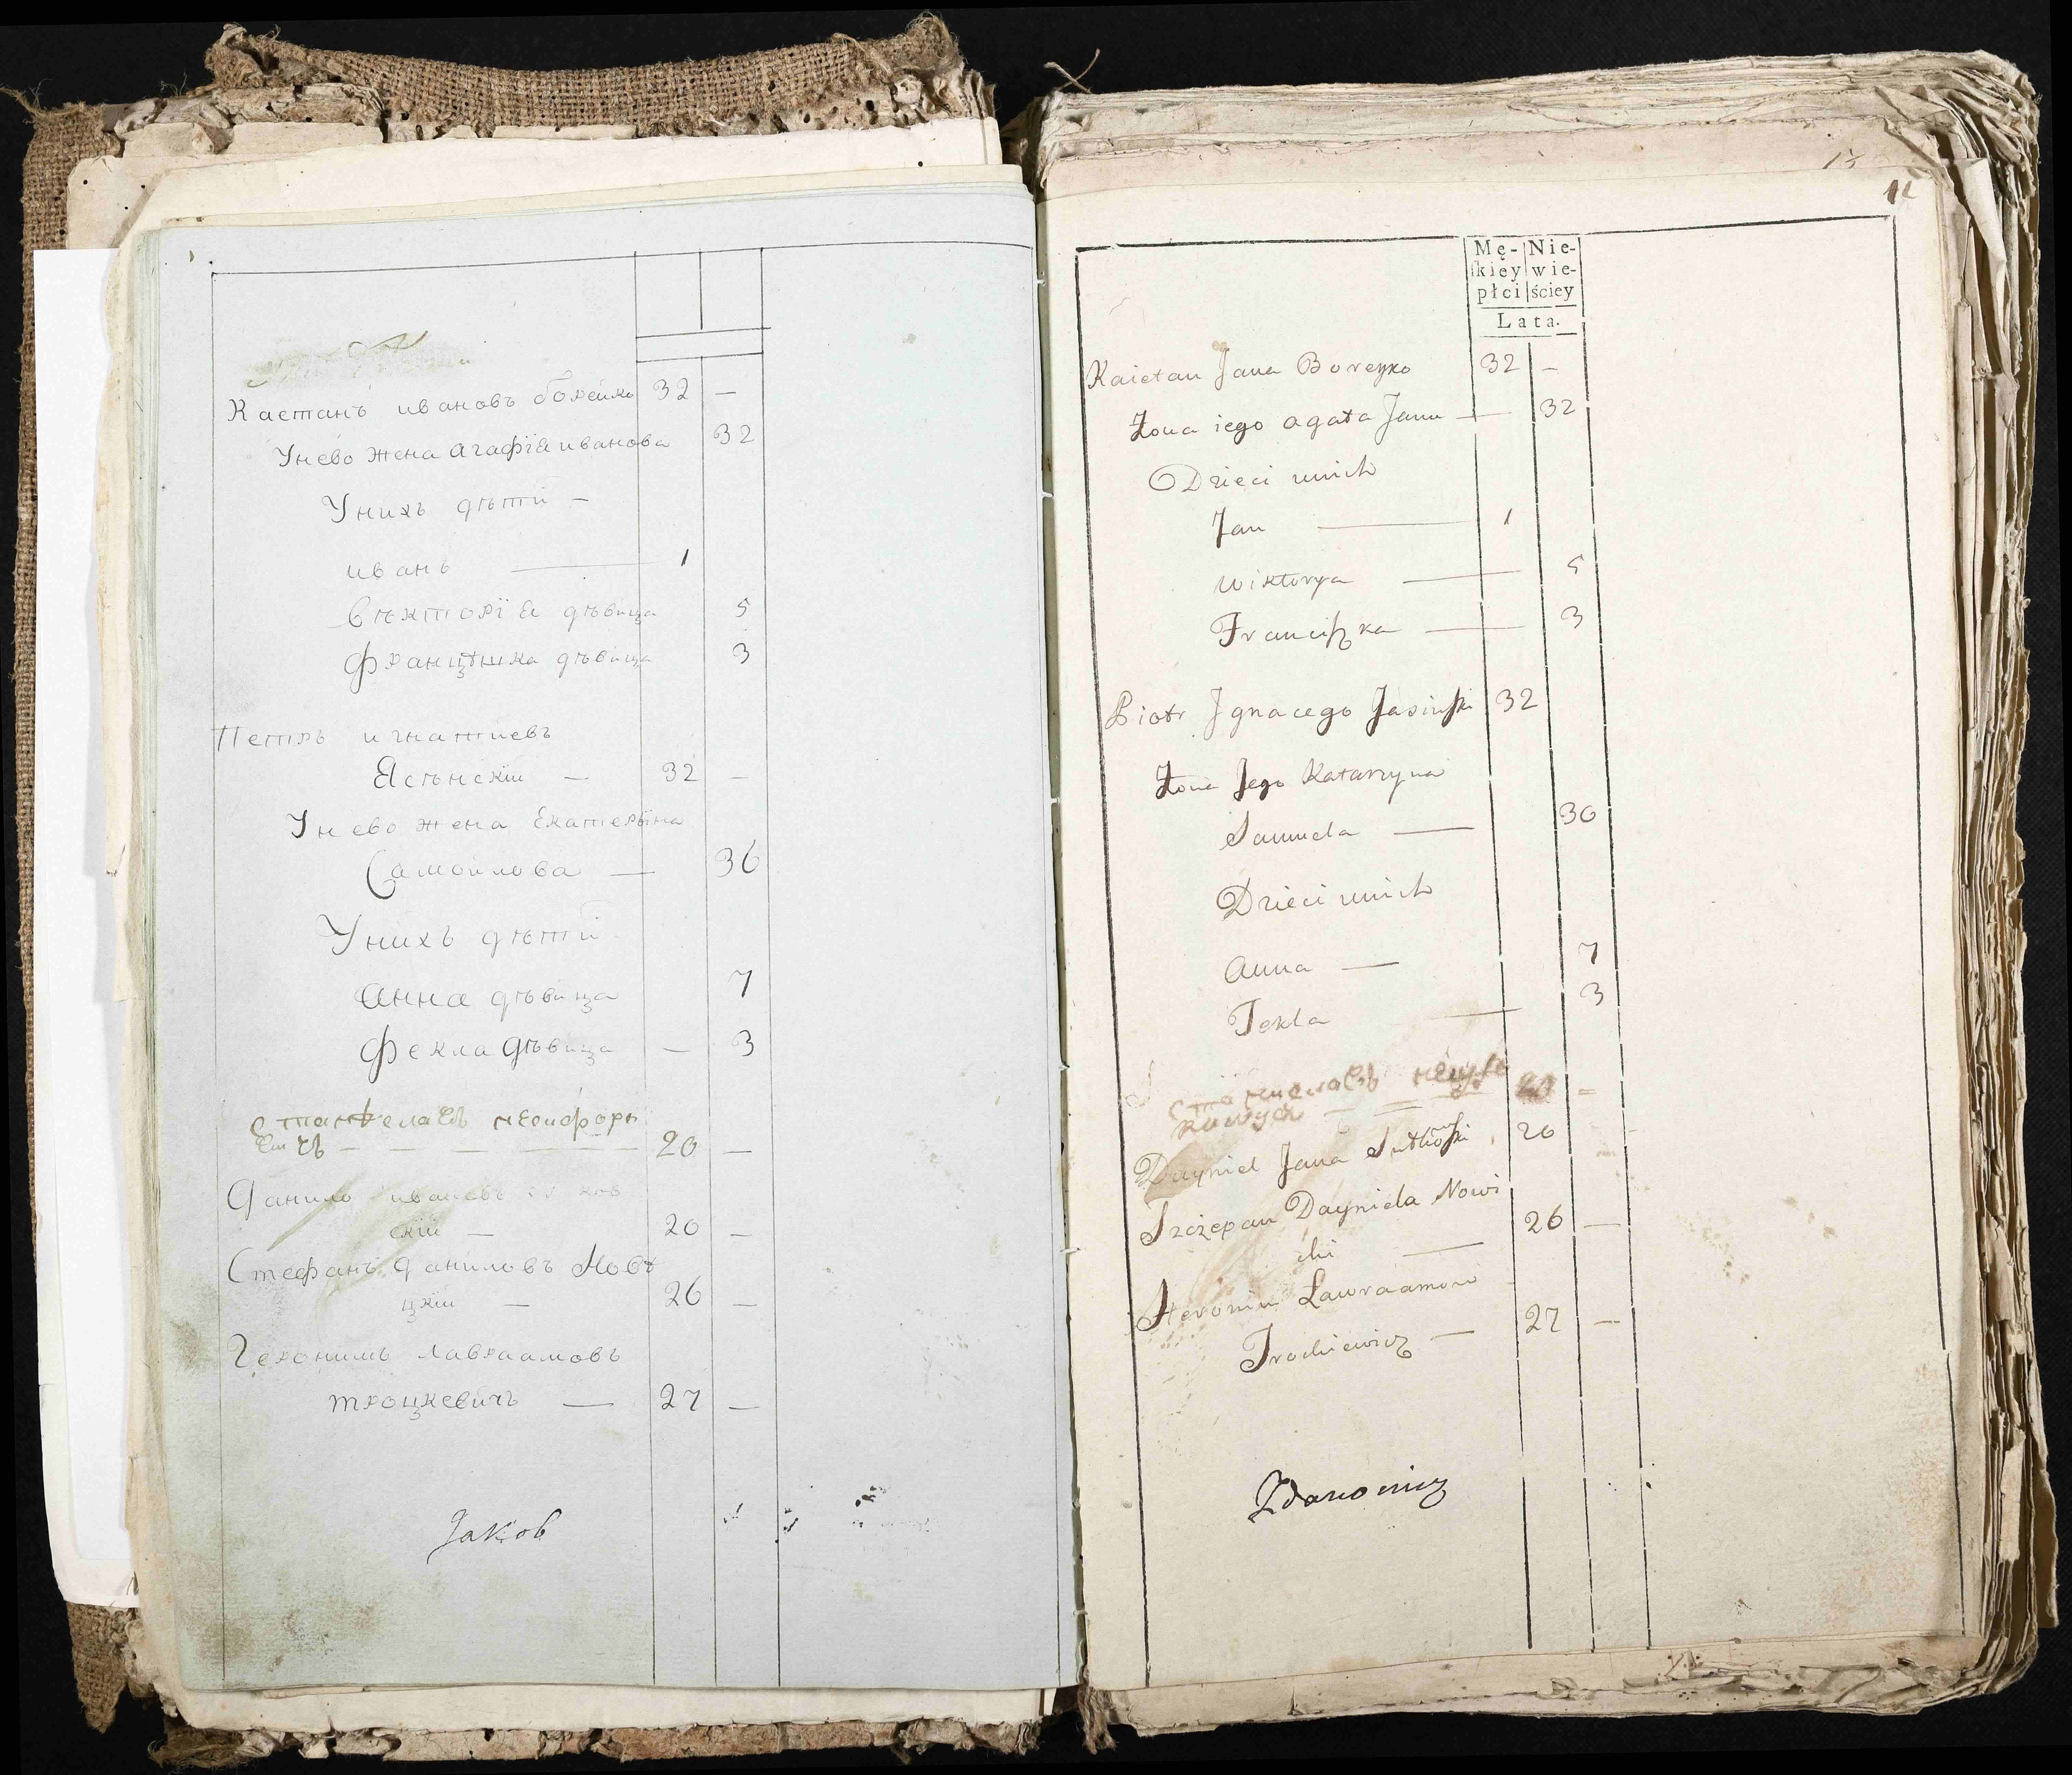 Каетанъ ивановъ борейко 32 —
Унево жена агафія иванова 32
Унихъ дѣти —
иванъ — 1
вѣкторія дѣвица 5
францѣшка дѣвица 3
Петръ игнатиевъ
Ясѣнскїи — 32 —
Унево жена Екатерына
Самоилова — 36
Унихъ дѣти
анна дѣвица 7
фекла дѣвица — 3
20 —
Данило ивановъ
скїи — 20 —
Стефанъ даниловъ Новѣ
цкїи — 26 —
Героними лавраамовъ
троцкевичъ — 27 —
Jakob
12
Mę- Nie-
skiey wie-
płci ściey
Lata.
Kaietan Jana Boreyko 32 —
Żona iego agata Jana — 32
Dzieci unich
Jan — 1
wiktorya — 5
Franciszka — 3
Piotr Jgnacego Jasinski 32
Żona Jego Katarzyna
Samuela — 30
Dzieci unich
anna — 7
Tekla — 3
Dayniel Jana 20
Szczepan Dayniela Nowi
cki — 26 —
Heronim Lawraamow
Trockiewicz — 27 —
Zdanowicz